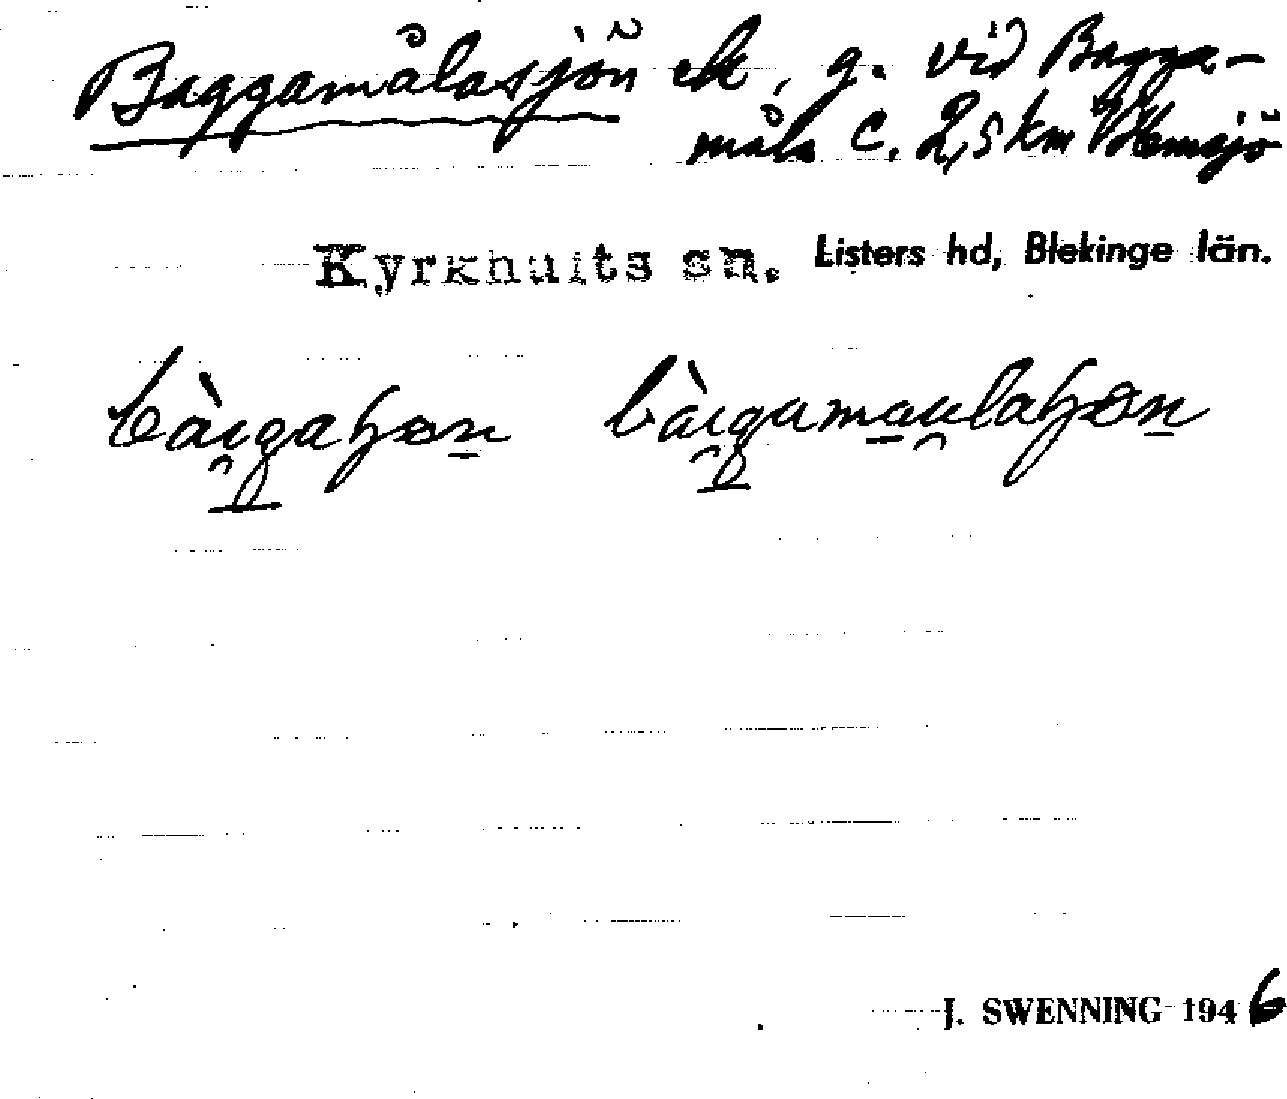 Baggamålasjön ek, g. vid Bagga-
måla c. 2,5 km V Hemsjö
Kyrkhults sn. Listers hd, Blekinge län.
J. SWENNING 1946